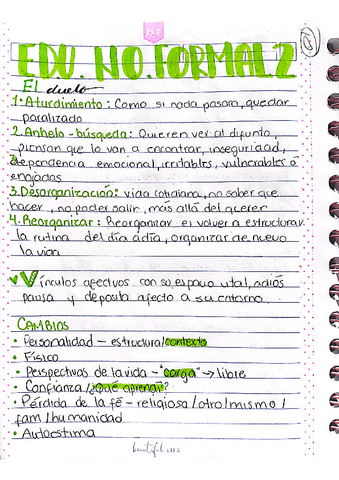 EDU. NO. FORMAL 2
El duelo
1. Aturdimiento: Como si nada pasara, quedar
paralizado
2. Anhelo - búsqueda: Quieren ver al difunto,
piensan que lo van a encontrar, inseguridad,
Dependencia emocional, irritables, vulnerables o
enojados
3. Desorganización: vida cotidiana, no saber que
hacer, no poder salir, más allá del querer
4. Reorganizar: Reorganizar el volver a estructurar
la rutina del día a día, organizar de nuevo
la vida
Vínculos afectivos con su espacio vital, adiós
pausa y deposita afecto a su entorno.
CAMBIOS
• Personalidad - estructura/contexto
• Físico
• Perspectivas de la vida - "carga" → libre
• Confianza/¿Qué aprendí?
• Pérdida de la fé - religiosa/otro/mismo/
fam/humanidad
• Autoestima
beautiful